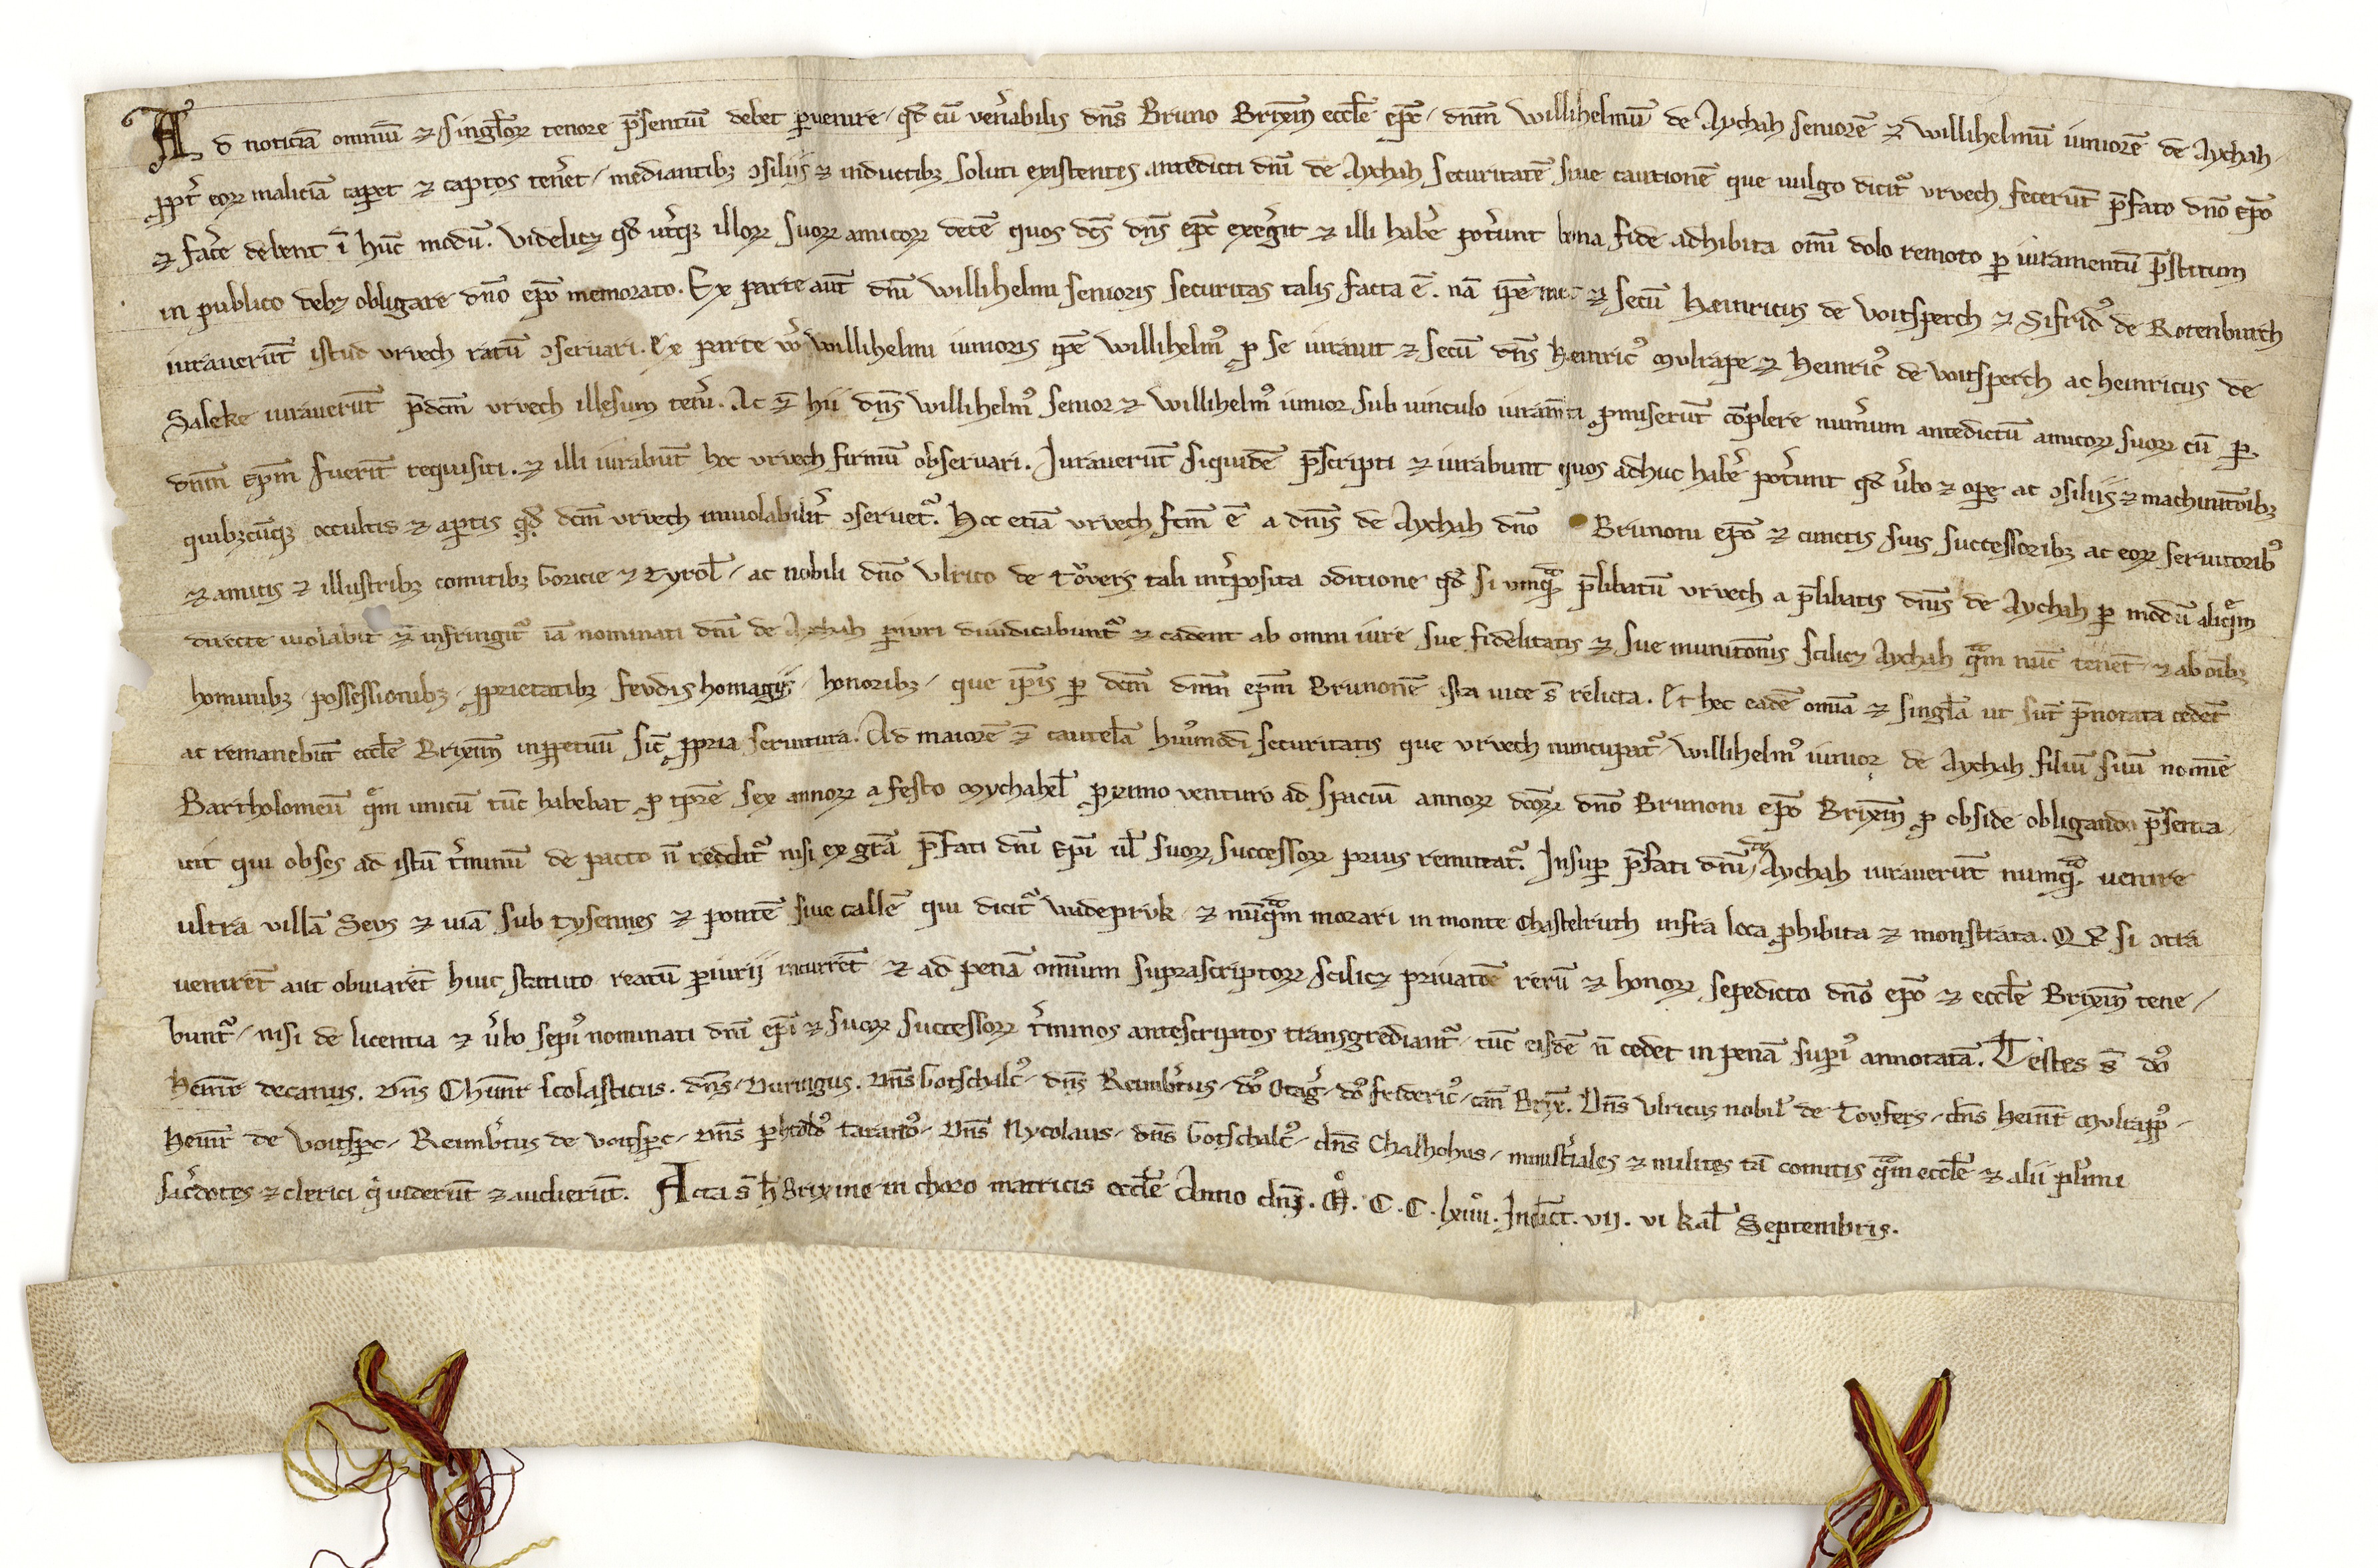 Ad noticiā omniū ⁊ singl̄oꝝ tenore p̄sentiū debet ꝑuenire / qd̄ cū ven̄abilis dn̄s Bruno Brixin̄ eccl̄e ep̄c / dn̄m Willihelmū de Aychah seniorē ⁊ Willihelmū iuniorē de Aychah /
ꝓpt̄ eoꝝ maliciā caꝑet ⁊ captos ten̄et / mediantibꝫ ↄsiliis ⁊ inductibꝫ soluti existentes antedicti dn̄i de Aychah securitatē siue cautionē que uulgo dicit᷑ vrvech fecerūt p̄fato dn̄o ep̄o
⁊ fac̄e debent ī hūc modū. Videlicꝫ qd̄ ut̄qꝫ illoꝝ suoꝝ amicoꝝ decē quos dc̄s dn̄s ep̄c exeḡit ⁊ illi hab̄e pot̄unt bona fide adhibita om̄i dolo remoto ꝑ iuramentū p̄stitum
in publico debꝫ obligare dn̄o ep̄o memorato. Ex parte aūt dn̄i Willihelmi senioris securitas talis facta ē. nā ip̄e ⁊ secū Heinricus de Voitsperch ⁊ Sifrid᷒ de Rotenburch
iurauerūt istud vrvech ratū ↄseruari. Ex parte v̄o Willihelmi iunioris ip̄e Willihelm᷒ ꝓ se iurauit ⁊ secū dn̄s Heinric᷒ Mvltzape ⁊ Heinric᷒ de Voitsperch ac Heinricus de
Saleke iurauerūt p̄dc̄m vrvech illesum ten̄i. Ac ⁊̄ hii dn̄s Willihelm᷒ senior ⁊ Willihelm᷒ iunior sub uinculo iuram̄ti ꝓmiserūt cōplere num̄um antedictū amicoꝝ suoꝝ cū ꝑ
dn̄m ep̄m fuerīt requisiti. ⁊ illi iurabūt hoc vrvech firmū obseruari. Iurauerūt siquidē p̄scripti ⁊ iurabunt quos adhuc hab̄e pot̄unt qd̄ v̄bo ⁊ oꝑe ac ↄsiliis ⁊ machinatōibꝫ
quibꝫcūqꝫ occultis ⁊ aꝑtis qd̄ dc̄m vrvech inuiolabilit̄ ↄseruet᷑. Hoc etiā vrvech fc̄m ē a dn̄is de Aychah dn̄o Brunoni ep̄o ⁊ cunctis suis successoribꝫ ac eoꝝ seruitorib᷒
⁊ amicis ⁊ illustribꝫ comitibꝫ Goricie ⁊ Tyrol̄ / ac nobili dn̄o Vlrico de Tovers tali int̄posita ↄditione qd̄ si vmqᷓ p̄libatū vrvech a p̄libatis dn̄is de Aychah ꝑ modū aliqͣm
directe uiolabit᷑ ⁊ infringit᷑ iā nominati dn̄i de Aychah ꝑiuri diiudicabunt᷑ ⁊ cadent ab omni iure sue fidelitatis ⁊ sue munitōnis scilicꝫ Aychah qᷓm nūc tenēt ⁊ ab oībꝫ
hominibꝫ / possessionibꝫ / ꝓprietatibꝫ / feudis homagiis / honoribꝫ / que ip̄is ꝑ dc̄m dn̄m ep̄m Brunonē ista uice s̄ relicta. Et hec eadē om̄ia ⁊ singl̄a ut sūt p̄notata cedēt
ac remanebūt eccl̄e Brixin̄ inꝑpetuū sic̄ ꝓpria seruitura. Ad maiorē ⁊̄ cautelā hui᷒modi securitatis que vrvech nuncupat᷑ Willihelm᷒ iunior de Aychah filiū suū nomīe
Bartholomeū qͤm unicū tūc habebat ꝓ tp̄re sex annoꝝ a festo Mychahel̄ ꝓximo venturo ad spaciū annoꝝ dc̄oꝝ dn̄o Brunoni ep̄o Brixin̄ ꝓ obside obligando p̄senta /
uit qui obses ad istū t̄minū de pacto n̄ reddit᷑ nisi ex gr̄a p̄fati dn̄i ep̄i ul̄ suoꝝ successoꝝ prius remittat᷑. Insuꝑ p̄fati dn̄i de Aychah iurauerūt numqᷓ uenire
ultra villā Sevs ⁊ uiā sub Tysennes ⁊ pontē siue callē qui dicit᷑ Wideprvk ⁊ nūqᷓm morari in monte Chastelruth infra loca ꝓhibita ⁊ monstrata. Qd̄ si ↄtra
uenirēt aut obuiarēt huic statuto reatū ꝑiurii incurrēt ⁊ ad penā omnium suprascriptoꝝ scilicꝫ priuatōe rerū ⁊ honoꝝ sepedicto dn̄o ep̄o ⁊ eccl̄e Brixin̄ tene /
bunt᷑ / nisi de licentia ⁊ v̄bo sepi᷒ nominati dn̄i ep̄i ⁊ suoꝝ successoꝝ t̄minos antescriptos transgrediant᷑ tūc eisdē n̄ cedet in penā suꝑi᷒ annotatā. Testes s̄ do᷒
Heinr̄ decanus. Dn̄s Chūnr̄ scolasticus. dn̄s Duringus. Dn̄s Gotschalc᷒ / dn̄s Reimb̄tus / do᷒ Otaḡ / do᷒ frideric᷒ / can̄ Brix̄. Dn̄s Vlricus nobil̄ de Tovfers / dn̄s Heinr̄ Mvltzap᷒ /
Heinr̄ de Voitspc̄ / Reimb̄tus de Voitspc̄ / Dn̄s Tarand᷒ / Dn̄s Nycolaus / dn̄s Gotschalc᷒ / dn̄s Chalhohus / minist̄iales ⁊ milites tā comitis qᷓm eccl̄e ⁊ alii pl̄imi
sac̄dotes ⁊ clerici qͥ uiderūt ⁊ audierūt. Acta s̄ h̄ Brixine in choro matricis eccl̄e Anno dn̄i. M̊. C. C. lxiiii̊. Indict̄. vii. vi kal̄ Septembris.